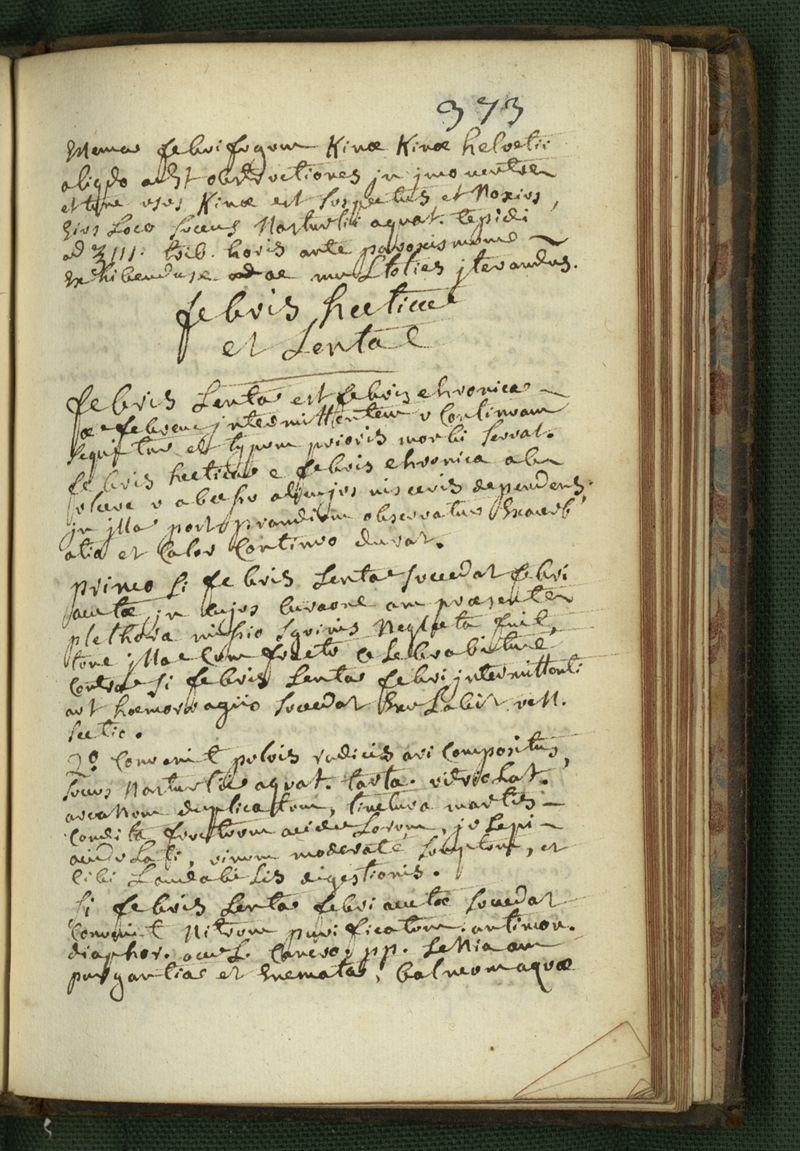 373
febrifugum Kinæ Kinæ helvetii
aliqdo adst obstructiones in
usus Kinæ est suspectus et Noxius,
ejus Loco succus Nasturtii aquat. tepidi
ad ʒ III. trib. horis ante paroxismum
Exhibendus ac multoties jterandus.
febris hectica
et Lenta
febris Lenta est febris chronica
febrem jntermittentem v Continuam
sequitur et typum prioris morbi servat.
febris hectica e febris chronica ab
ulcere v abcessu alicujus visceris dependens,
jn jlla post prandium observatur Exacerb
atio et Calor Continuo durat.
primo si febris Lenta succedat febri
acutæ, jn cujus curaone am præsenter
plethora missio sgvinis Neglecta fuit,
tunc jlla Cum fructu Celebrabitur
Contra si febris Lenta febri jntermittenti
aut hæmorragiis succedat Exulabit ven.
sectio.
2° Convenit pulvis radicis ari Compositus,
succus Nasturtii aquat. tarta. vitriolat.
arcanum duplicatum, tinctura martis
Condita fructuum acidulorum, julepi
acidulati, vinum moderate sumptum, et
cibi Laudabilis digestionis.
si febris Lenta febri acutæ succedat
Convenit Nitrum purificatum. antimon.
diaphor. ocul. Cancro. pp. Leniaam
purgantia et Enemata, balneum aquæ